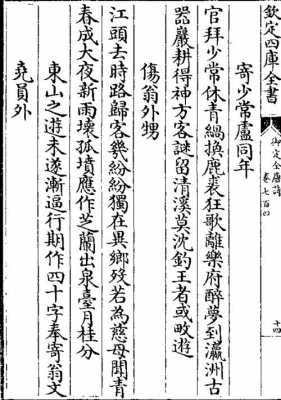 欽定四庫全書
御定全唐詩
卷七百四
十四
寄少常盧同年
官拜少常休青緺換鹿裘狂歌離樂府醉夢到瀛洲古
器巖耕得神方客謎留清溪莫沈釣王者或畋遊
傷翁外甥
江頭去時路歸客幾紛紛獨在異鄉歿若為慈母聞青
春成大夜新雨壞孤墳應作芝蘭出泉臺月桂分
東山之遊未遂漸逼行期作四十字奉寄翁文
堯員外